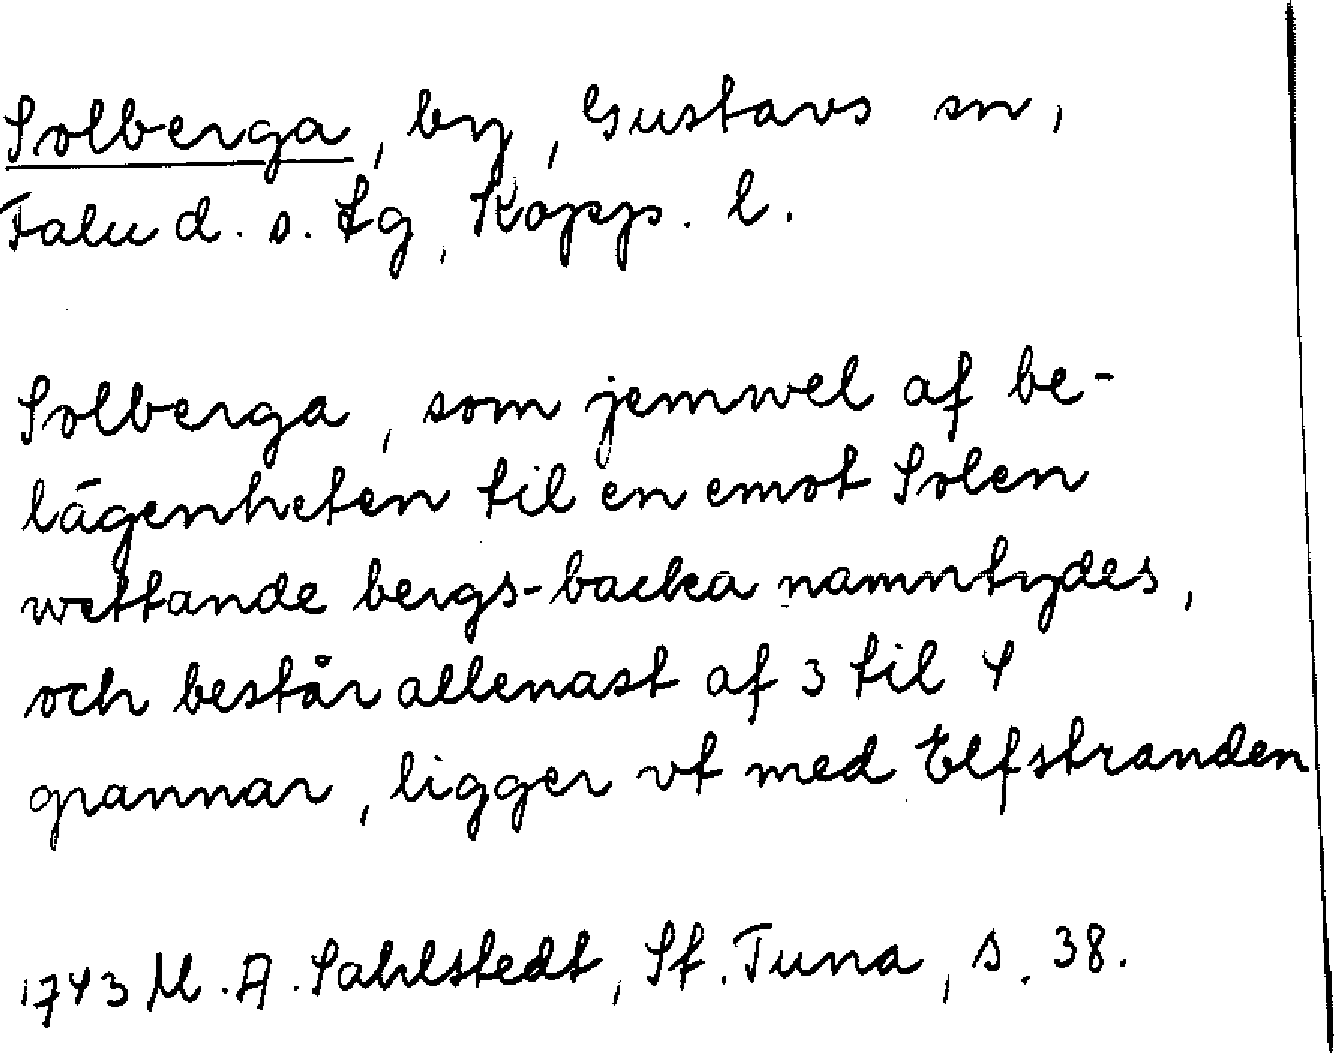 Solberga, by, Gustavs sn,
Falu d. s. tg, Kopp. l.
Solberga, som jemwel af be-
lägenheten til en emot Solen
wettande bergs-backa namntydes,
och består allenast af 3 til 4
grannar, ligger vt med Elfstranden
1743 M. A. Sahlstedt, St. Tuna, s. 38.